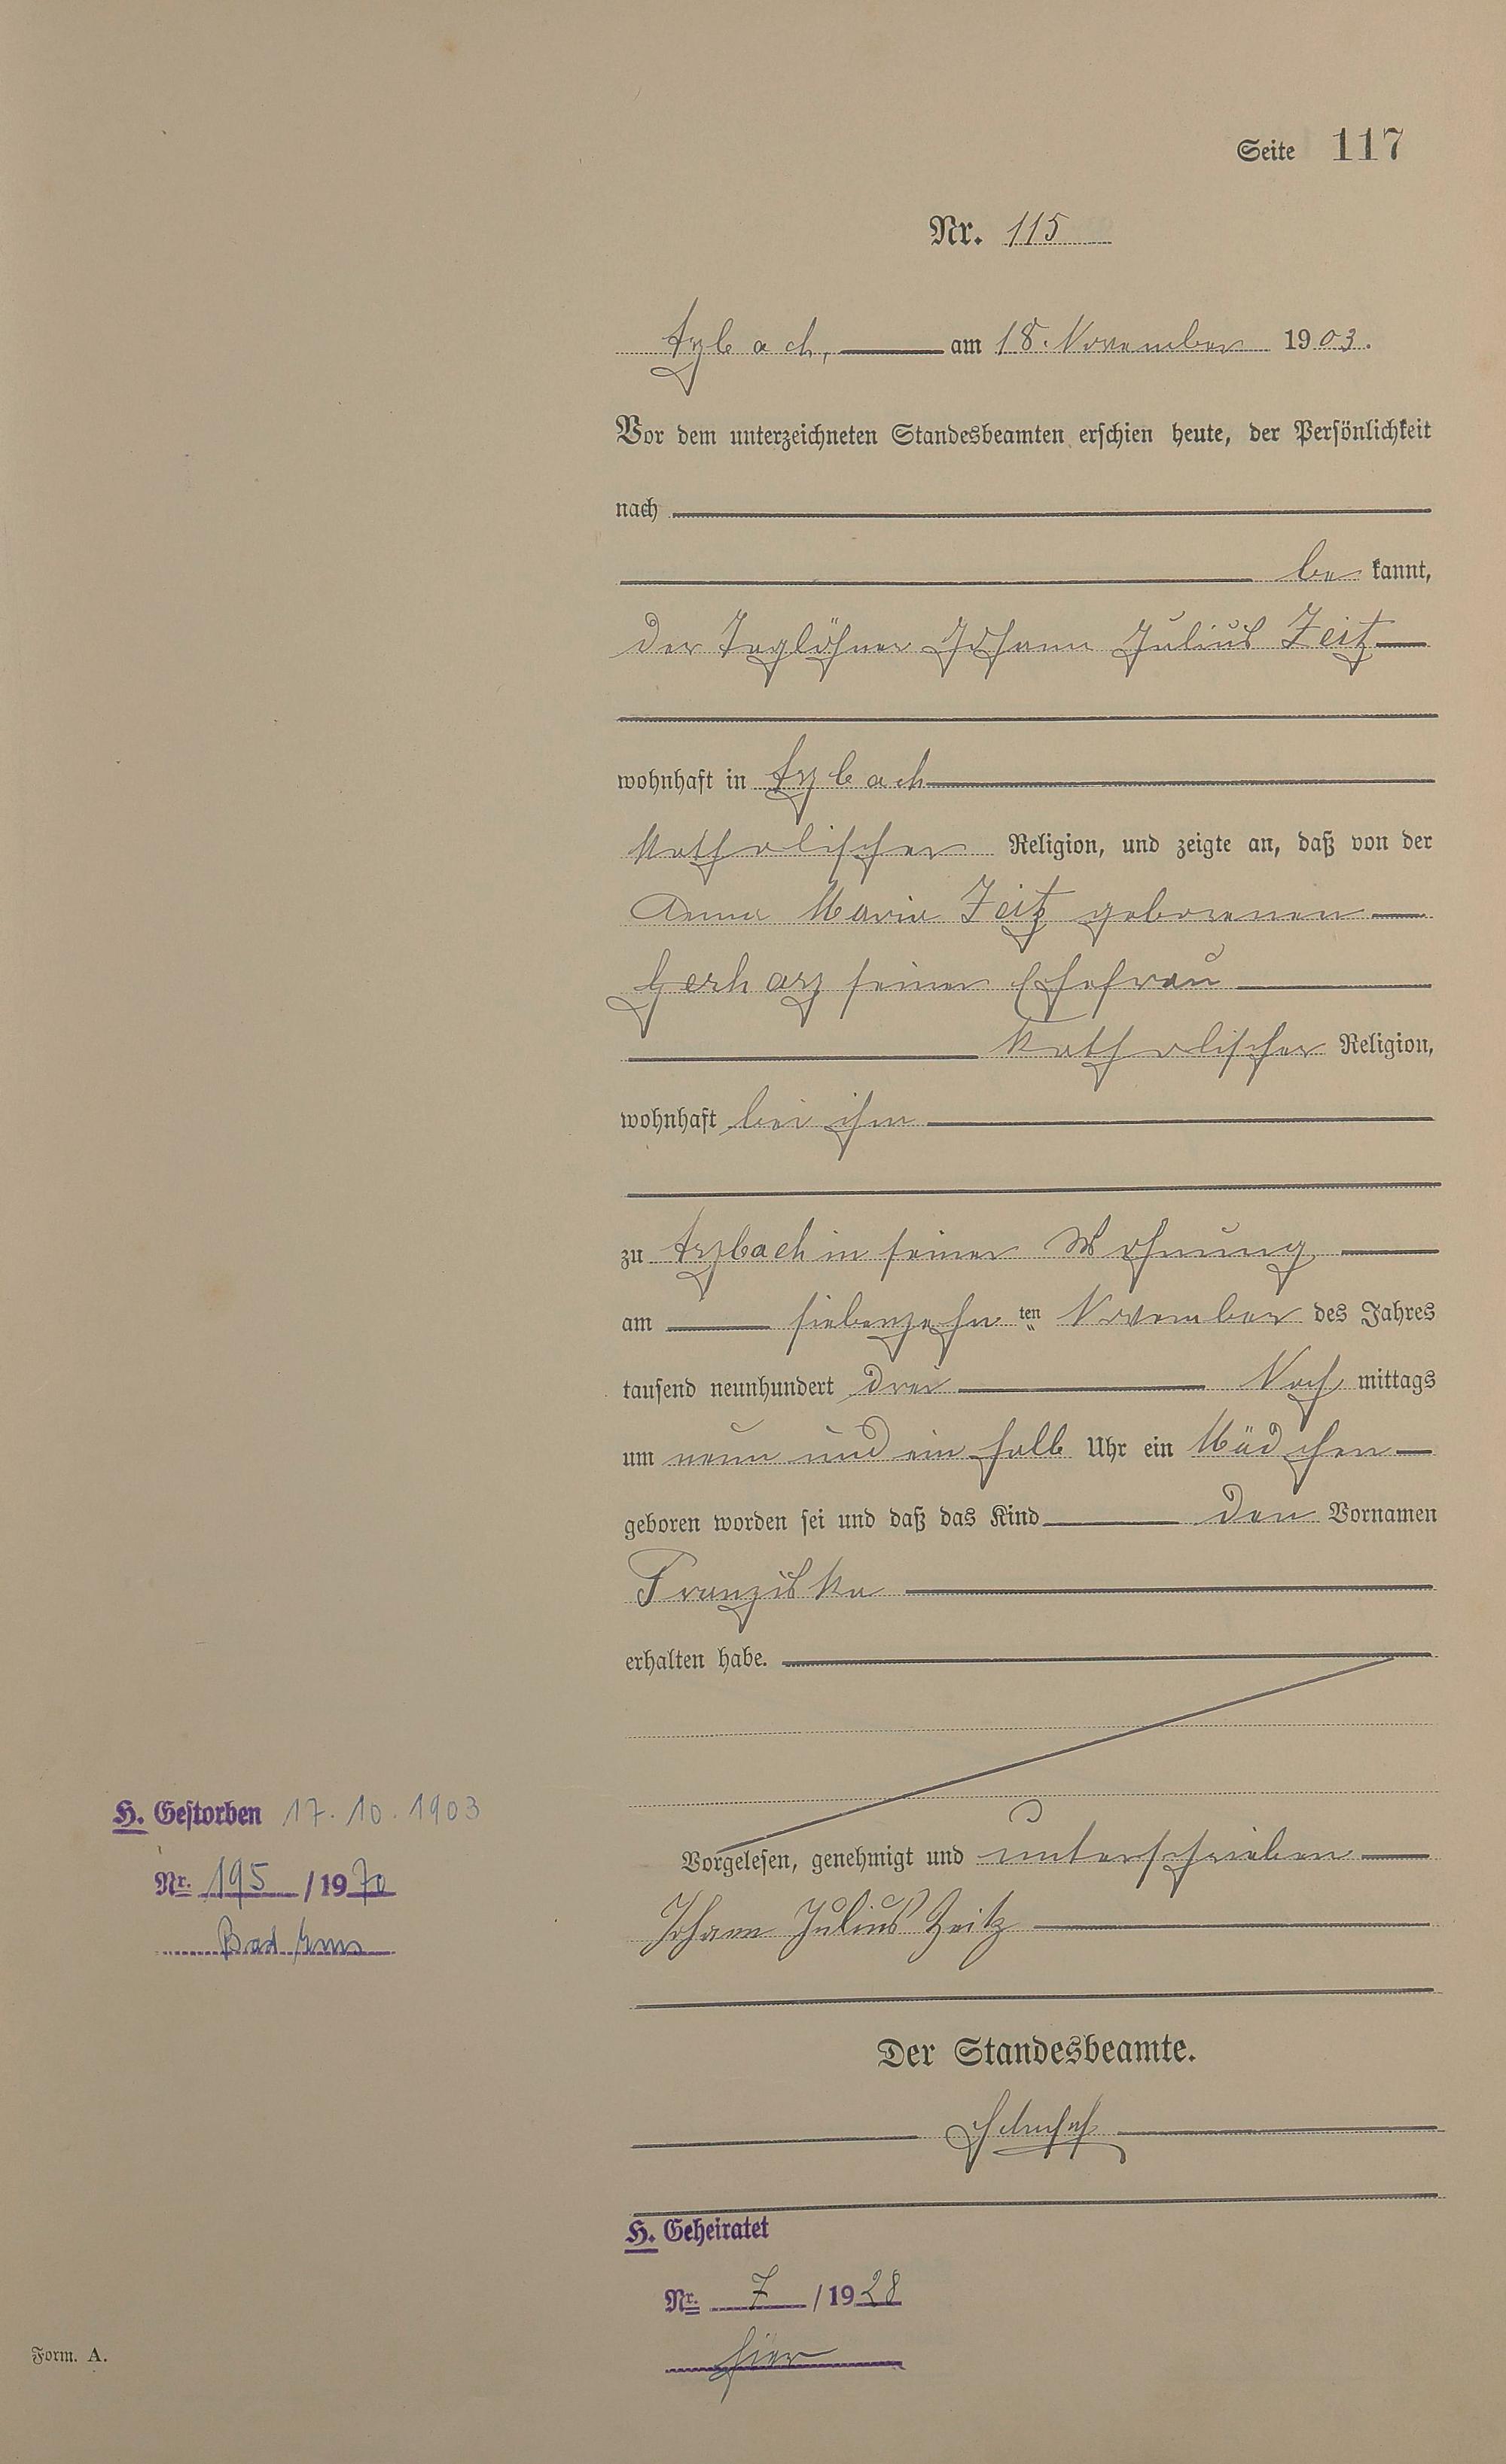 Seite 117
Nr. 115
Arzbach, am 18. November 1903.
Vor dem unterzeichneten Standesbeamten erschien heute, der Persönlichkeit
nach
be kannt,
der Taglöhner Johann Julius Zeitz
wohnhaft in Arzbach
katholischer Religion, und zeigte an, daß von der
Anna Maria Zeitz geborenen
Gerharz seiner Ehefrau
katholischer Religion,
wohnhaft bei ihm
zu Arzbach in seiner Wohnung
am siebenzehn ten November des Jahres
tausend neunhundert drei Nach mittags
um neun und ein halb Uhr ein Mädchen
geboren worden sei und daß das Kind den Vornamen
Franziska
erhalten habe.
H. Gestorben 17.10.1903
Nr. 195 / 1970
Bad Ems
Vorgelesen, genehmigt und unterschrieben
Johann Julius Zeitz
Der Standesbeamte.
H. Geheiratet
Nr. 7 / 1928
hier
Form. A.